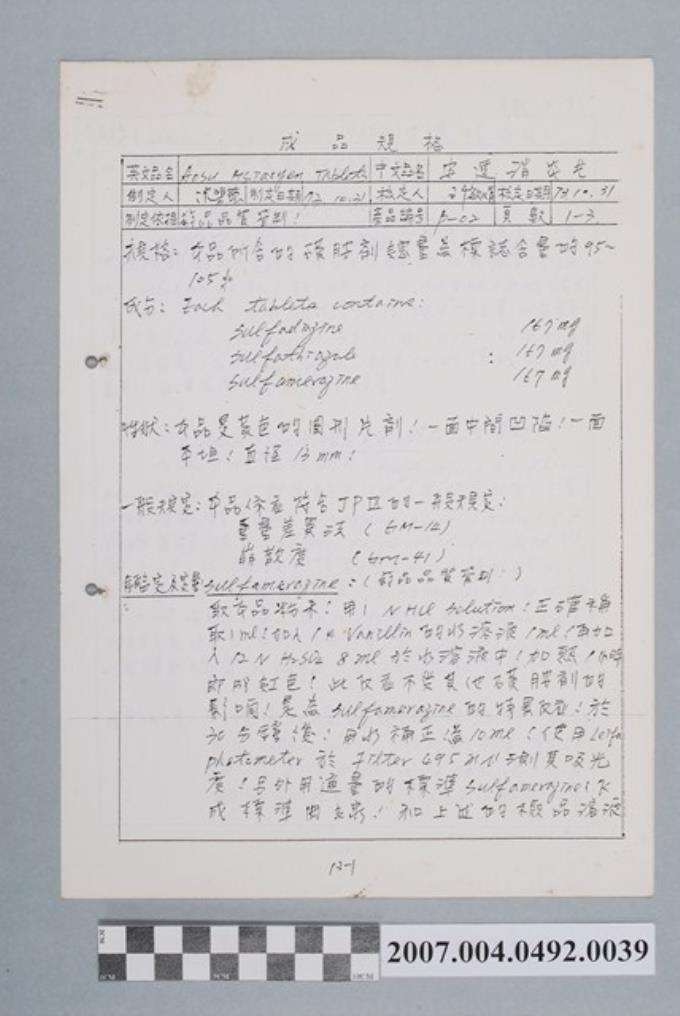 成品規格
英文品名 Ansu Tablets 中文品名 安速消炎片
制定人 制定日期 72.10.21 核定人 核定日期 73.10.31
制定依据 藥品品質管制! 藥品編号 B-02 頁數 1-3
規格:本品所含的磺胺剤總量為標誌含量的95~
105%
成分:Each tablets contains:
sulfadiazine 167 mg
sulfathiazole : 167 mg
sulfamerazine 167 mg
性狀:本品是黃色的圓形片剤!一面中間凹陷!一面
平坦!直徑13mm!
一般規定:本品保證符合JPⅨ的一般規定:
重量差異法 (GM-14)
崩散度 (GM-41)
鑑定及定量 sulfamerazine:(藥品品質管制:)
: 取本品粉末!用1 N HCl solution!正確稱
取1ml!加入1% Vanillin的水溶液1ml!再加
入12N H₂SO₄ 8ml於水溶液中!加熱!
即成紅色!此反應不受其他磺胺剤的
影响!是為sulfamerazine的特異反應!於
30分鐘後!用水補正滿10ml!使用Leifo
photometer於Filter 495 測其吸光
度!另外用適量的標準sulfamerazine!
成標準曲線!和上述的檢品溶液
13-1
2007.004.0492.0039